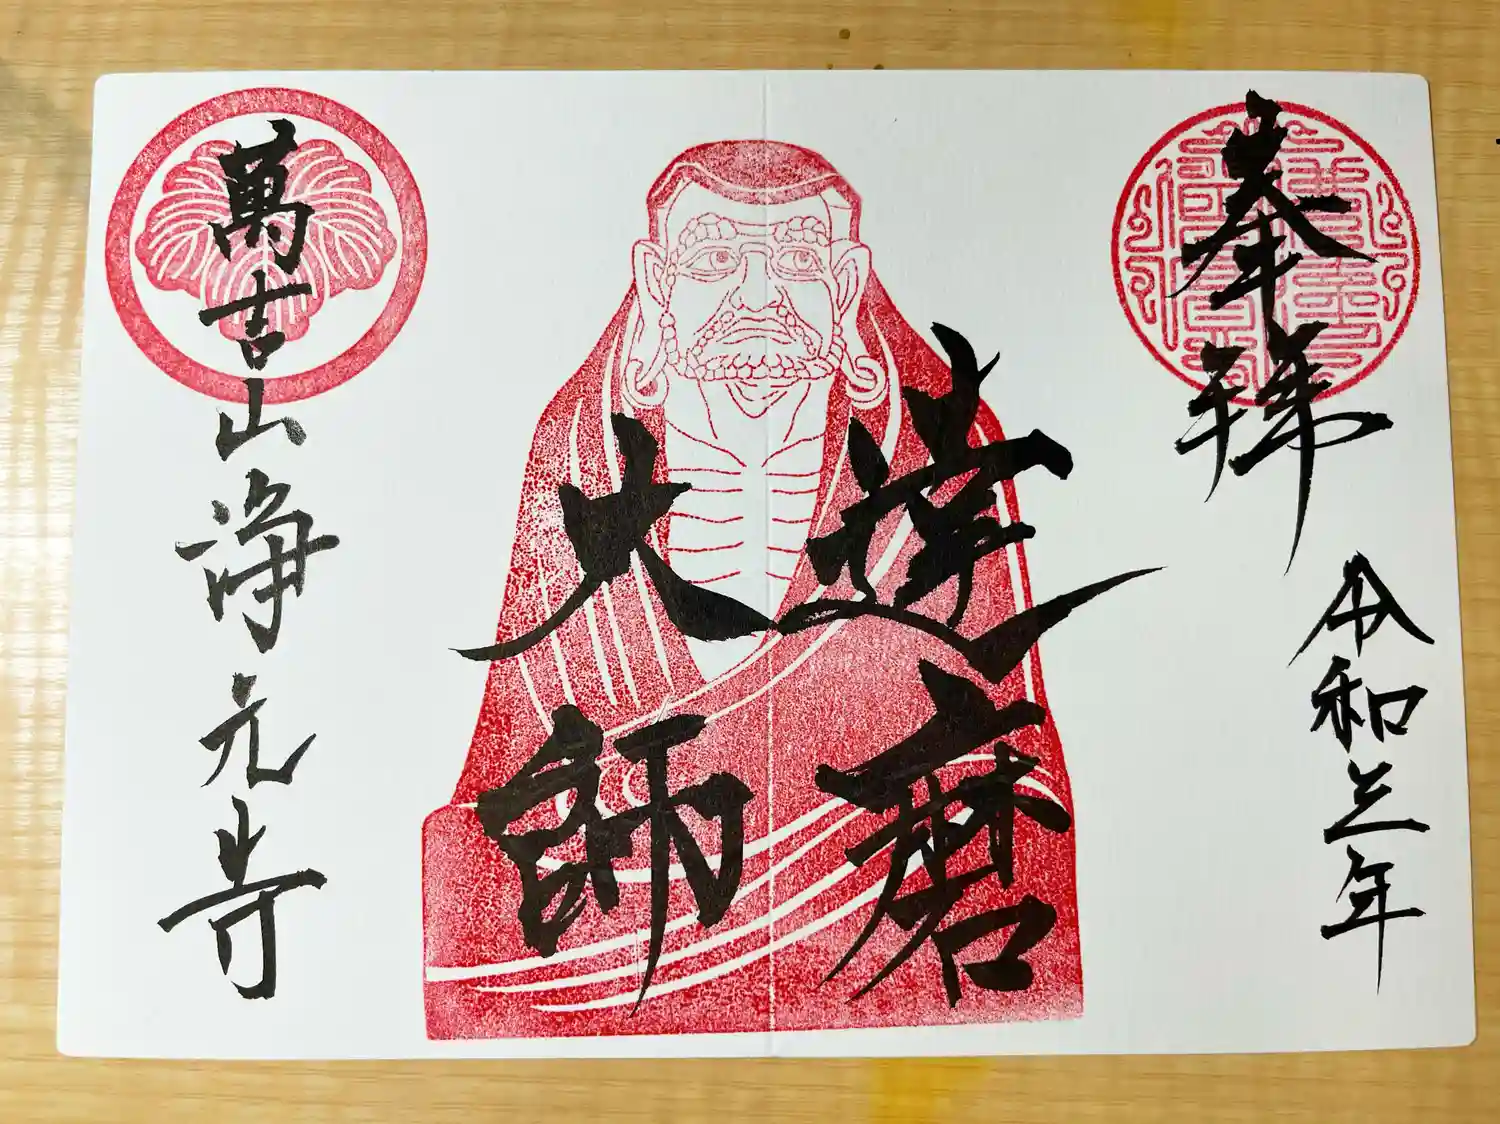 奉拝
令和三年
達磨
大師
萬吉山浄元寺